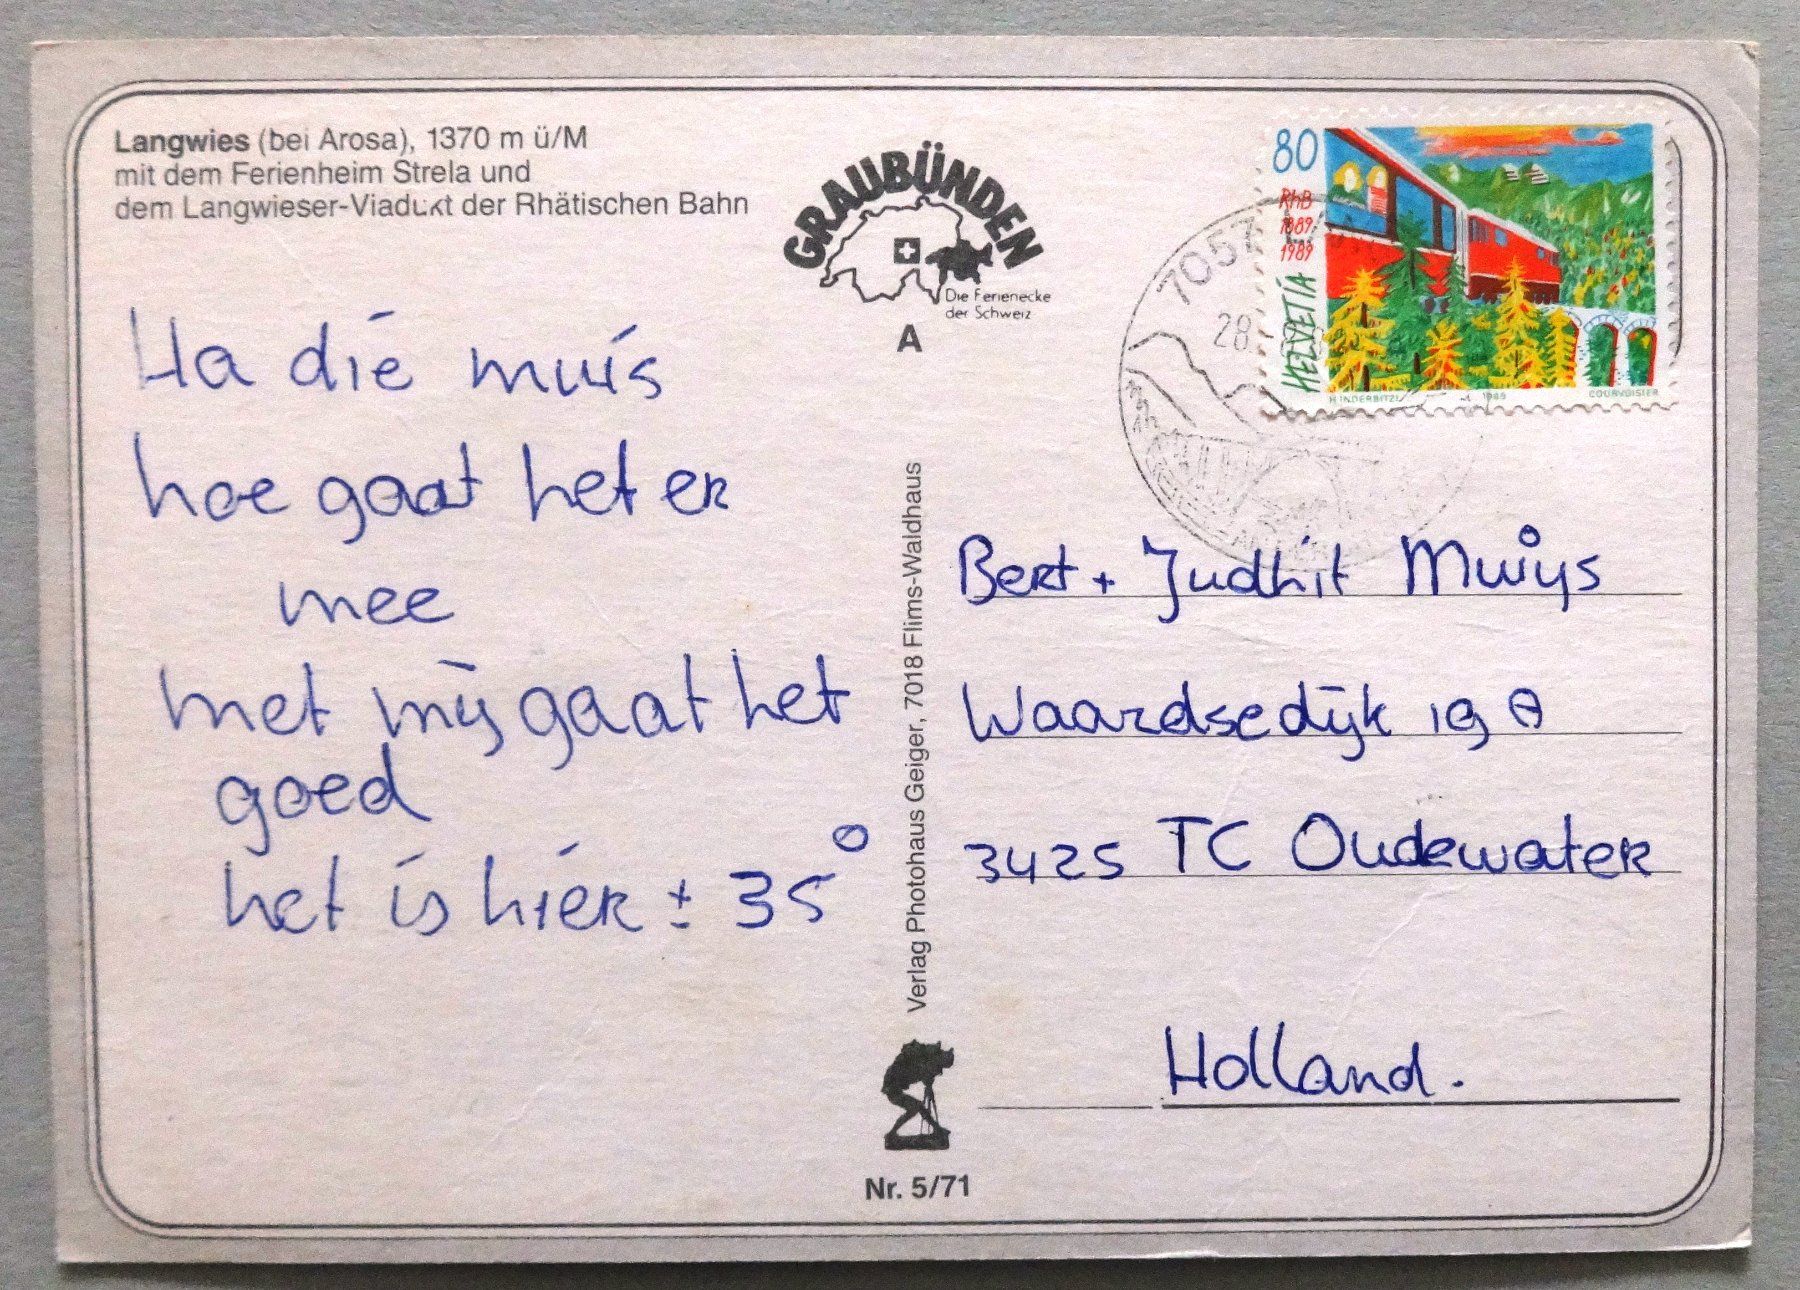 Langwies (bei Arosa), 1370 m ü/M
mit dem Ferienheim Strela und
dem Langwieser-Viadukt der Rhätischen Bahn
GRAUBÜNDEN
Die Ferienecke
der Schweiz
A
80
RhB
1889
1989
HELVETIA
1989
COURVOISIER
7057
28.
Ha die muis
hoe gaat het er
mee
met mij gaat het
goed
het is hier ± 35°
Verlag Photohaus Geiger, 7018 Flims-Waldhaus
Bert + Judhit Muijs
Waardsedijk 19 A
3425 TC Oudewater
Holland.
Nr. 5/71